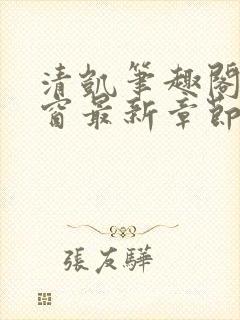 清凱筆趣閣
窗最新章節
張友驊